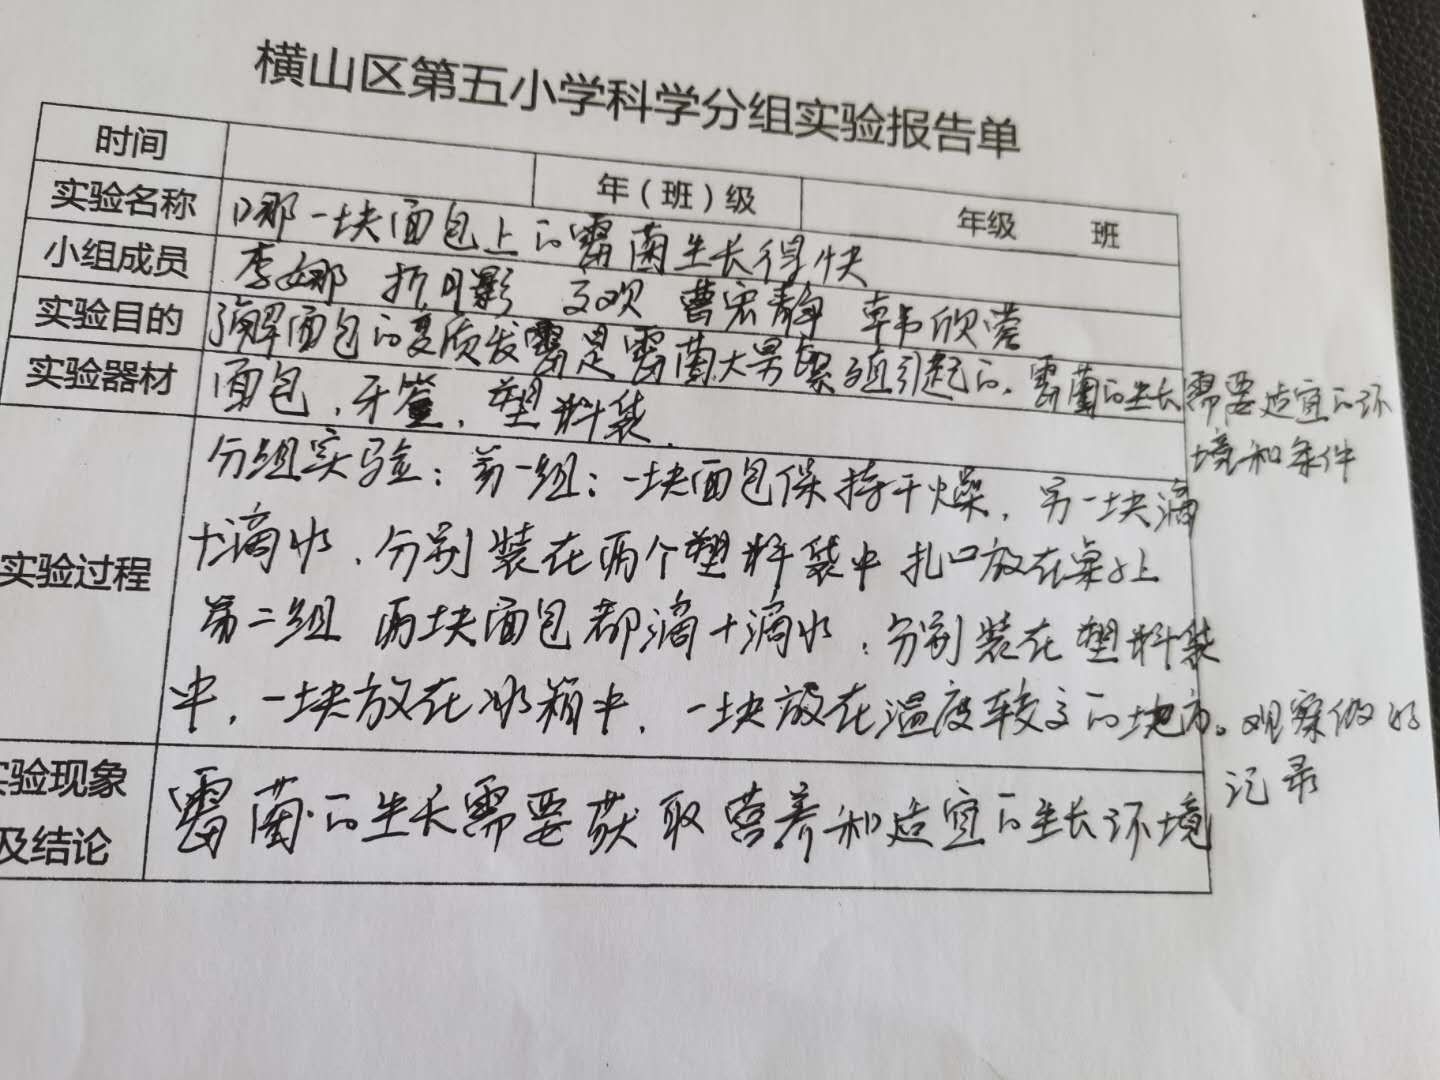 横山区第五小学科学分组实验报告单
时间 年(班)级 年级 班
实验名称 哪一块面包上的霉菌生长得快
小组成员 李娜 折月影 欢 曹宏静 韩欣蓉
实验目的 了解面包的变质发霉是霉菌大量繁殖引起的.霉菌的生长需要适宜的环
境和条件
实验器材 面包、牙签、塑料袋.
分组实验:第一组:一块面包保持干燥.另一块滴
实验过程 十滴水.分别装在两个塑料袋中扎口放在桌上
第二组 两块面包都滴十滴水.分别装在塑料袋
中.一块放在冰箱中.一块放在温度较高的地方。观察做好
记录
实验现象
及结论 霉菌的生长需要获取营养和适宜的生长环境